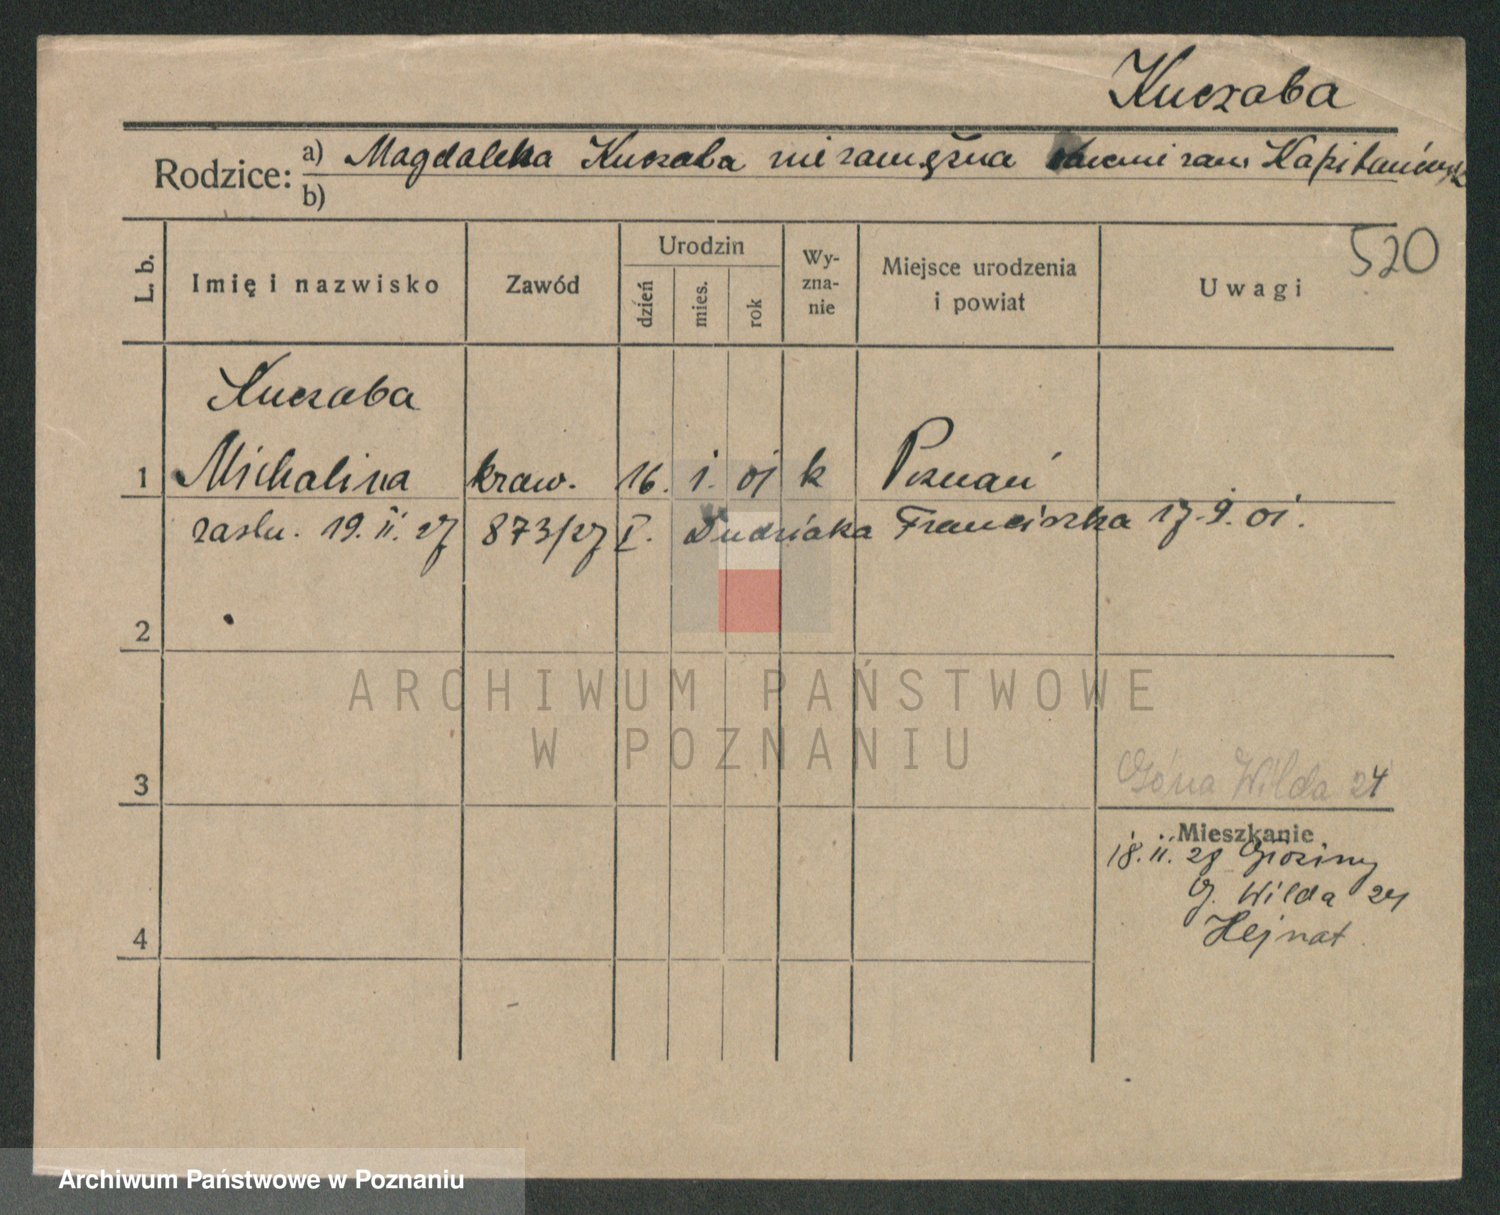 Kuczaba
Rodzice: a) Magdalena Kuczaba niezamężna obecnie zam. Kapitanów
b)
520
L. b.
Imię i nazwisko
Zawód
Urodzin
dzień
mies.
rok
Wy-
zna-
nie
Miejsce urodzenia
i powiat
Uwagi
Kuczaba
1 Michalina kraw. 16. i. 01 k Poznań
zaślu. 19. II. 27 873/27 I. Dudziaka Franciszka 17.9.01.
2
ARCHIWUM PAŃSTWOWE
W POZNANIU
3
Góna Wilda 24
Mieszkanie
18. II. 28
G. Wilda 24
4
Hejnat
Archiwum Państwowe w Poznaniu